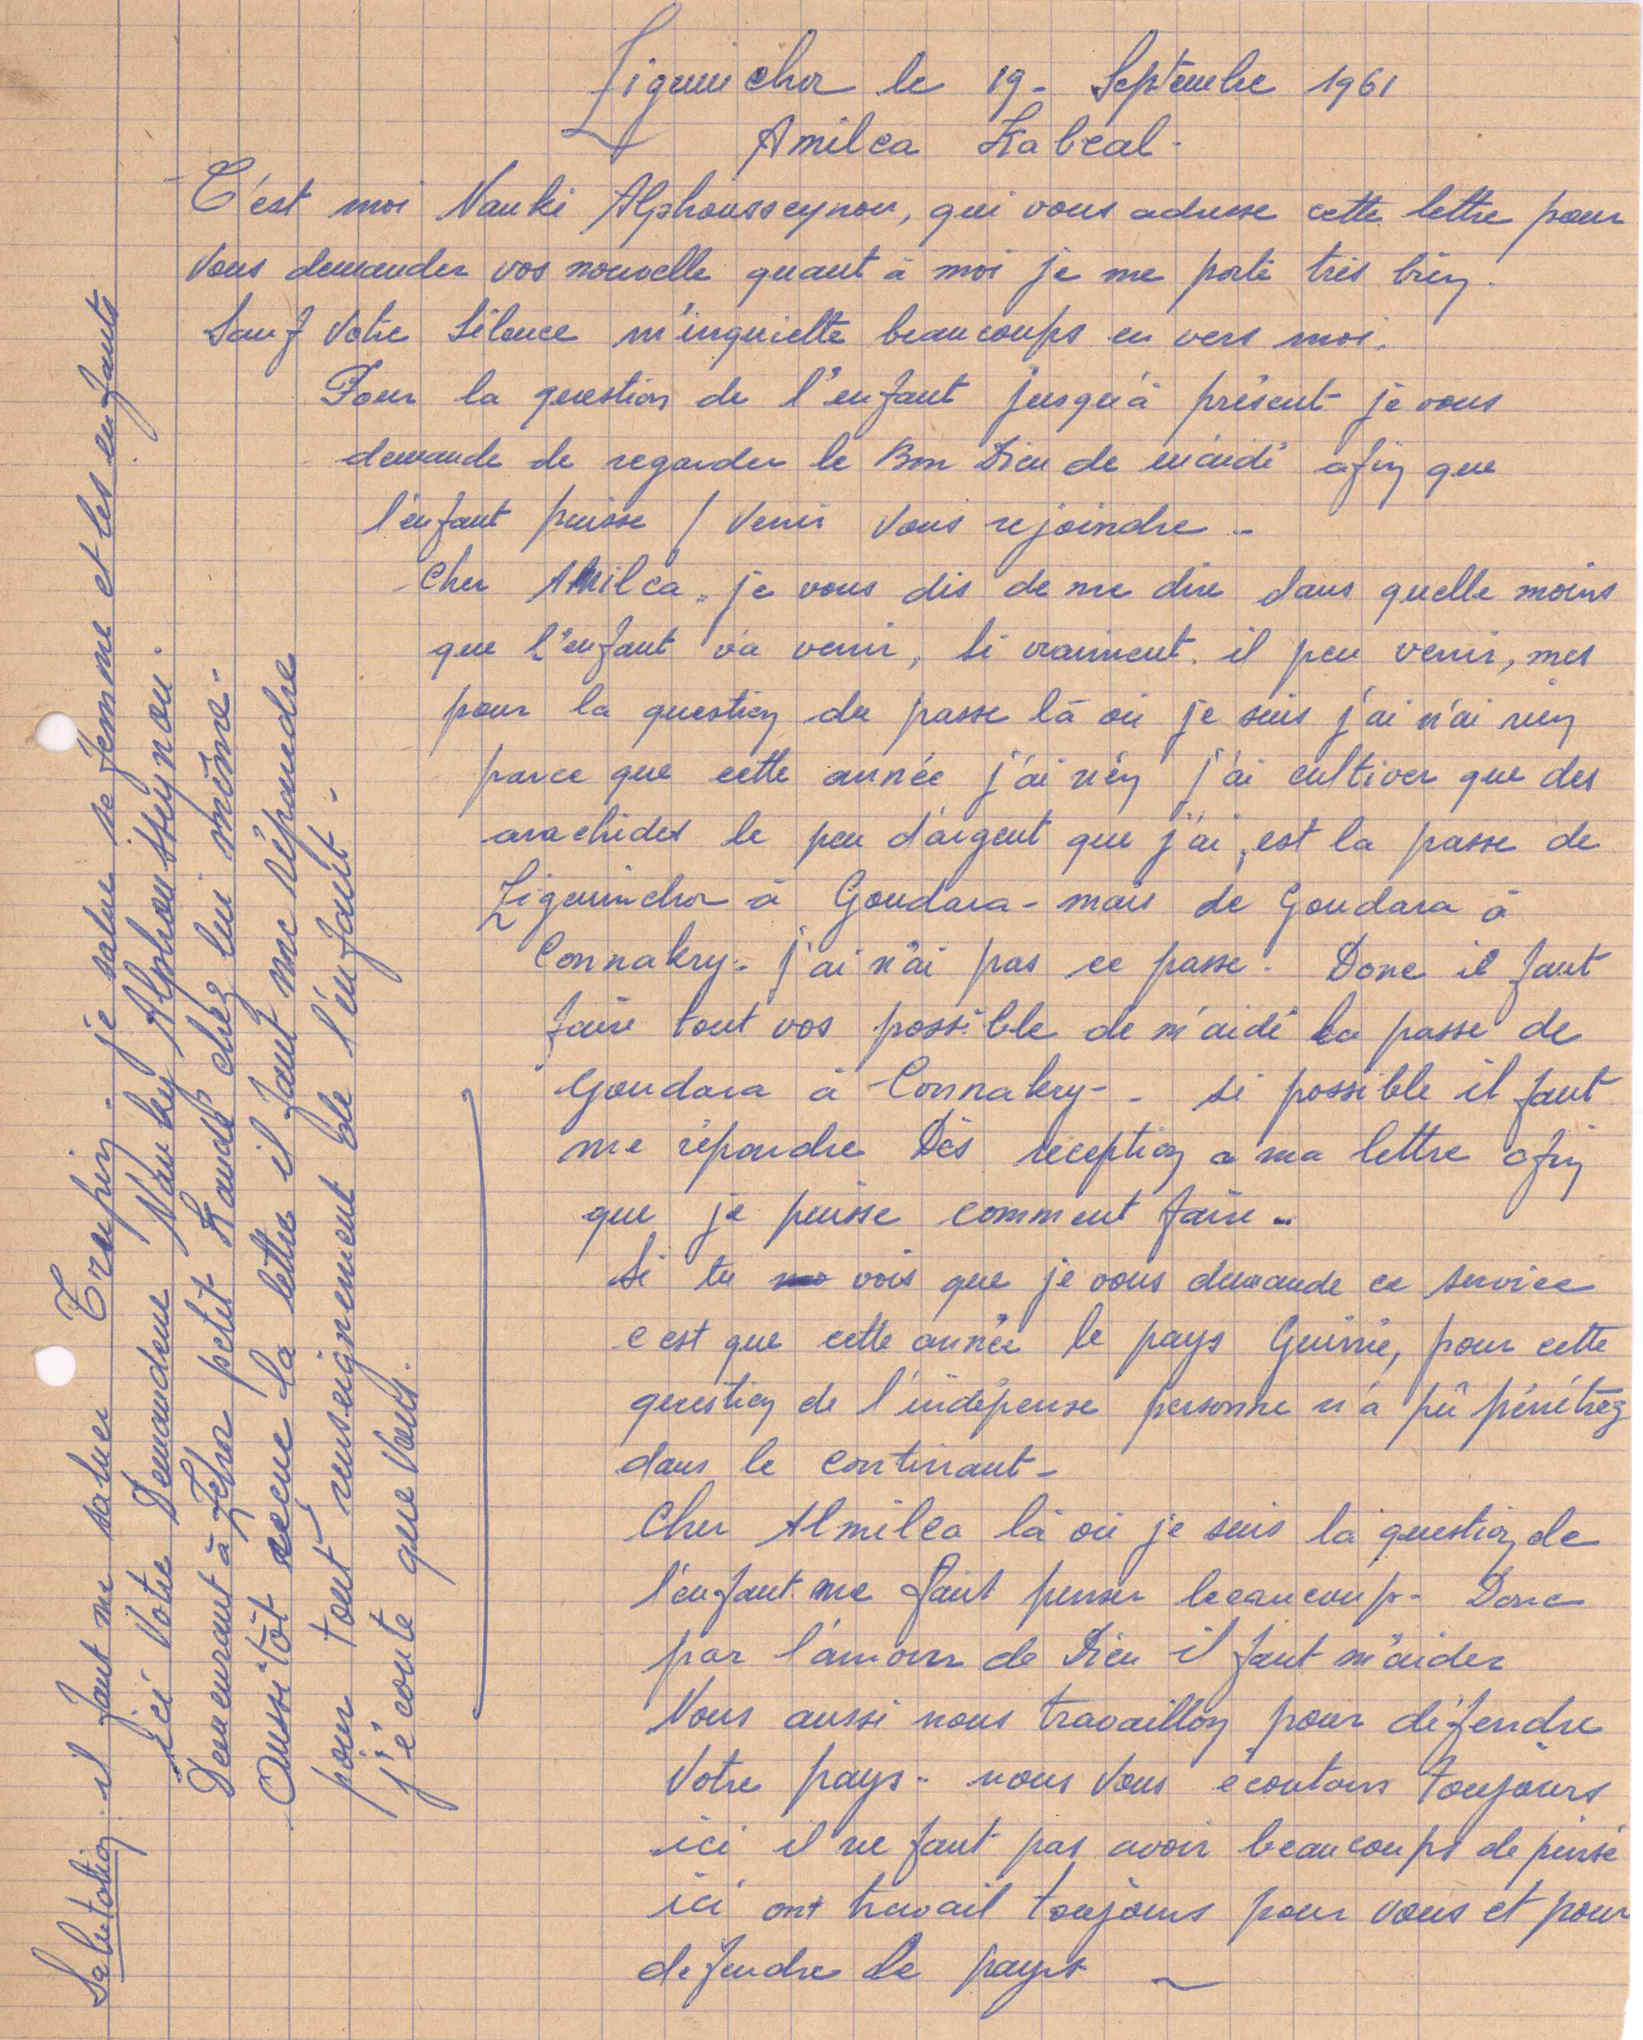 Ziguinchor le 19- Septembre 1961
Amilca Kabral-
C'est moi Nanki Alphousseynou, qui vous adresse cette lettre pour
vous demander vos nouvelle quant à moi je me porte très bien.
Sauf votre silence m'inquiette beaucoups en vers moi.
Pour la question de l'enfant jusqu'à présent je vous
demande de regarder le Bon Dieu de m'aidé afin que
l'enfant puisse / venir vous rejoindre -
Cher Amilca, je vous dis de me dire dans quelle moins
que l'enfant va venir, si vraiment. il peu venir, mes
pour la question du passe là où je suis j'ai n'ai rien
parce que cette année j'ai rien j'ai cultiver que des
arachides le peu d'argent que j'ai, est la passe de
Ziguinchor à Goudara - mais de Goudara à
Connakry- j'ai n'ai pas ce passe. Donc il faut
faire tout vos possible de m'aidé la passe de
Goudara à Connakry - - si possible il faut
me répondre Dès réception a ma lettre afin
que je puisse comment faire -
Si tu vois que je vous demande ce service
c'est que cette année le pays Guinie, pour cette
question de l'indépense personne n'a pû pénétrez
dans le continant -
Cher Almilca là où je suis la question de
l'enfant me faut penser beeaucoup - Donc
par l'amour de Dieu il faut m'aider
Nous aussi nous travaillon pour défendre
votre pays - nous vous écoutons toujours
ici il ne faut pas avoir beaucoups de pensé
ici ont travail toujours pour vous et pour
défendre le pays
Salutation. il faut me saluer je salue se femme et les enfants
ici votre Demandeur Nanky Alphousseynou.
Demeurant à petit Kandé chez lui même -
Aussitôt reçue la lettre il faut me répondre
pour tout renseignement de l'enfant -
j'écoute que vous.